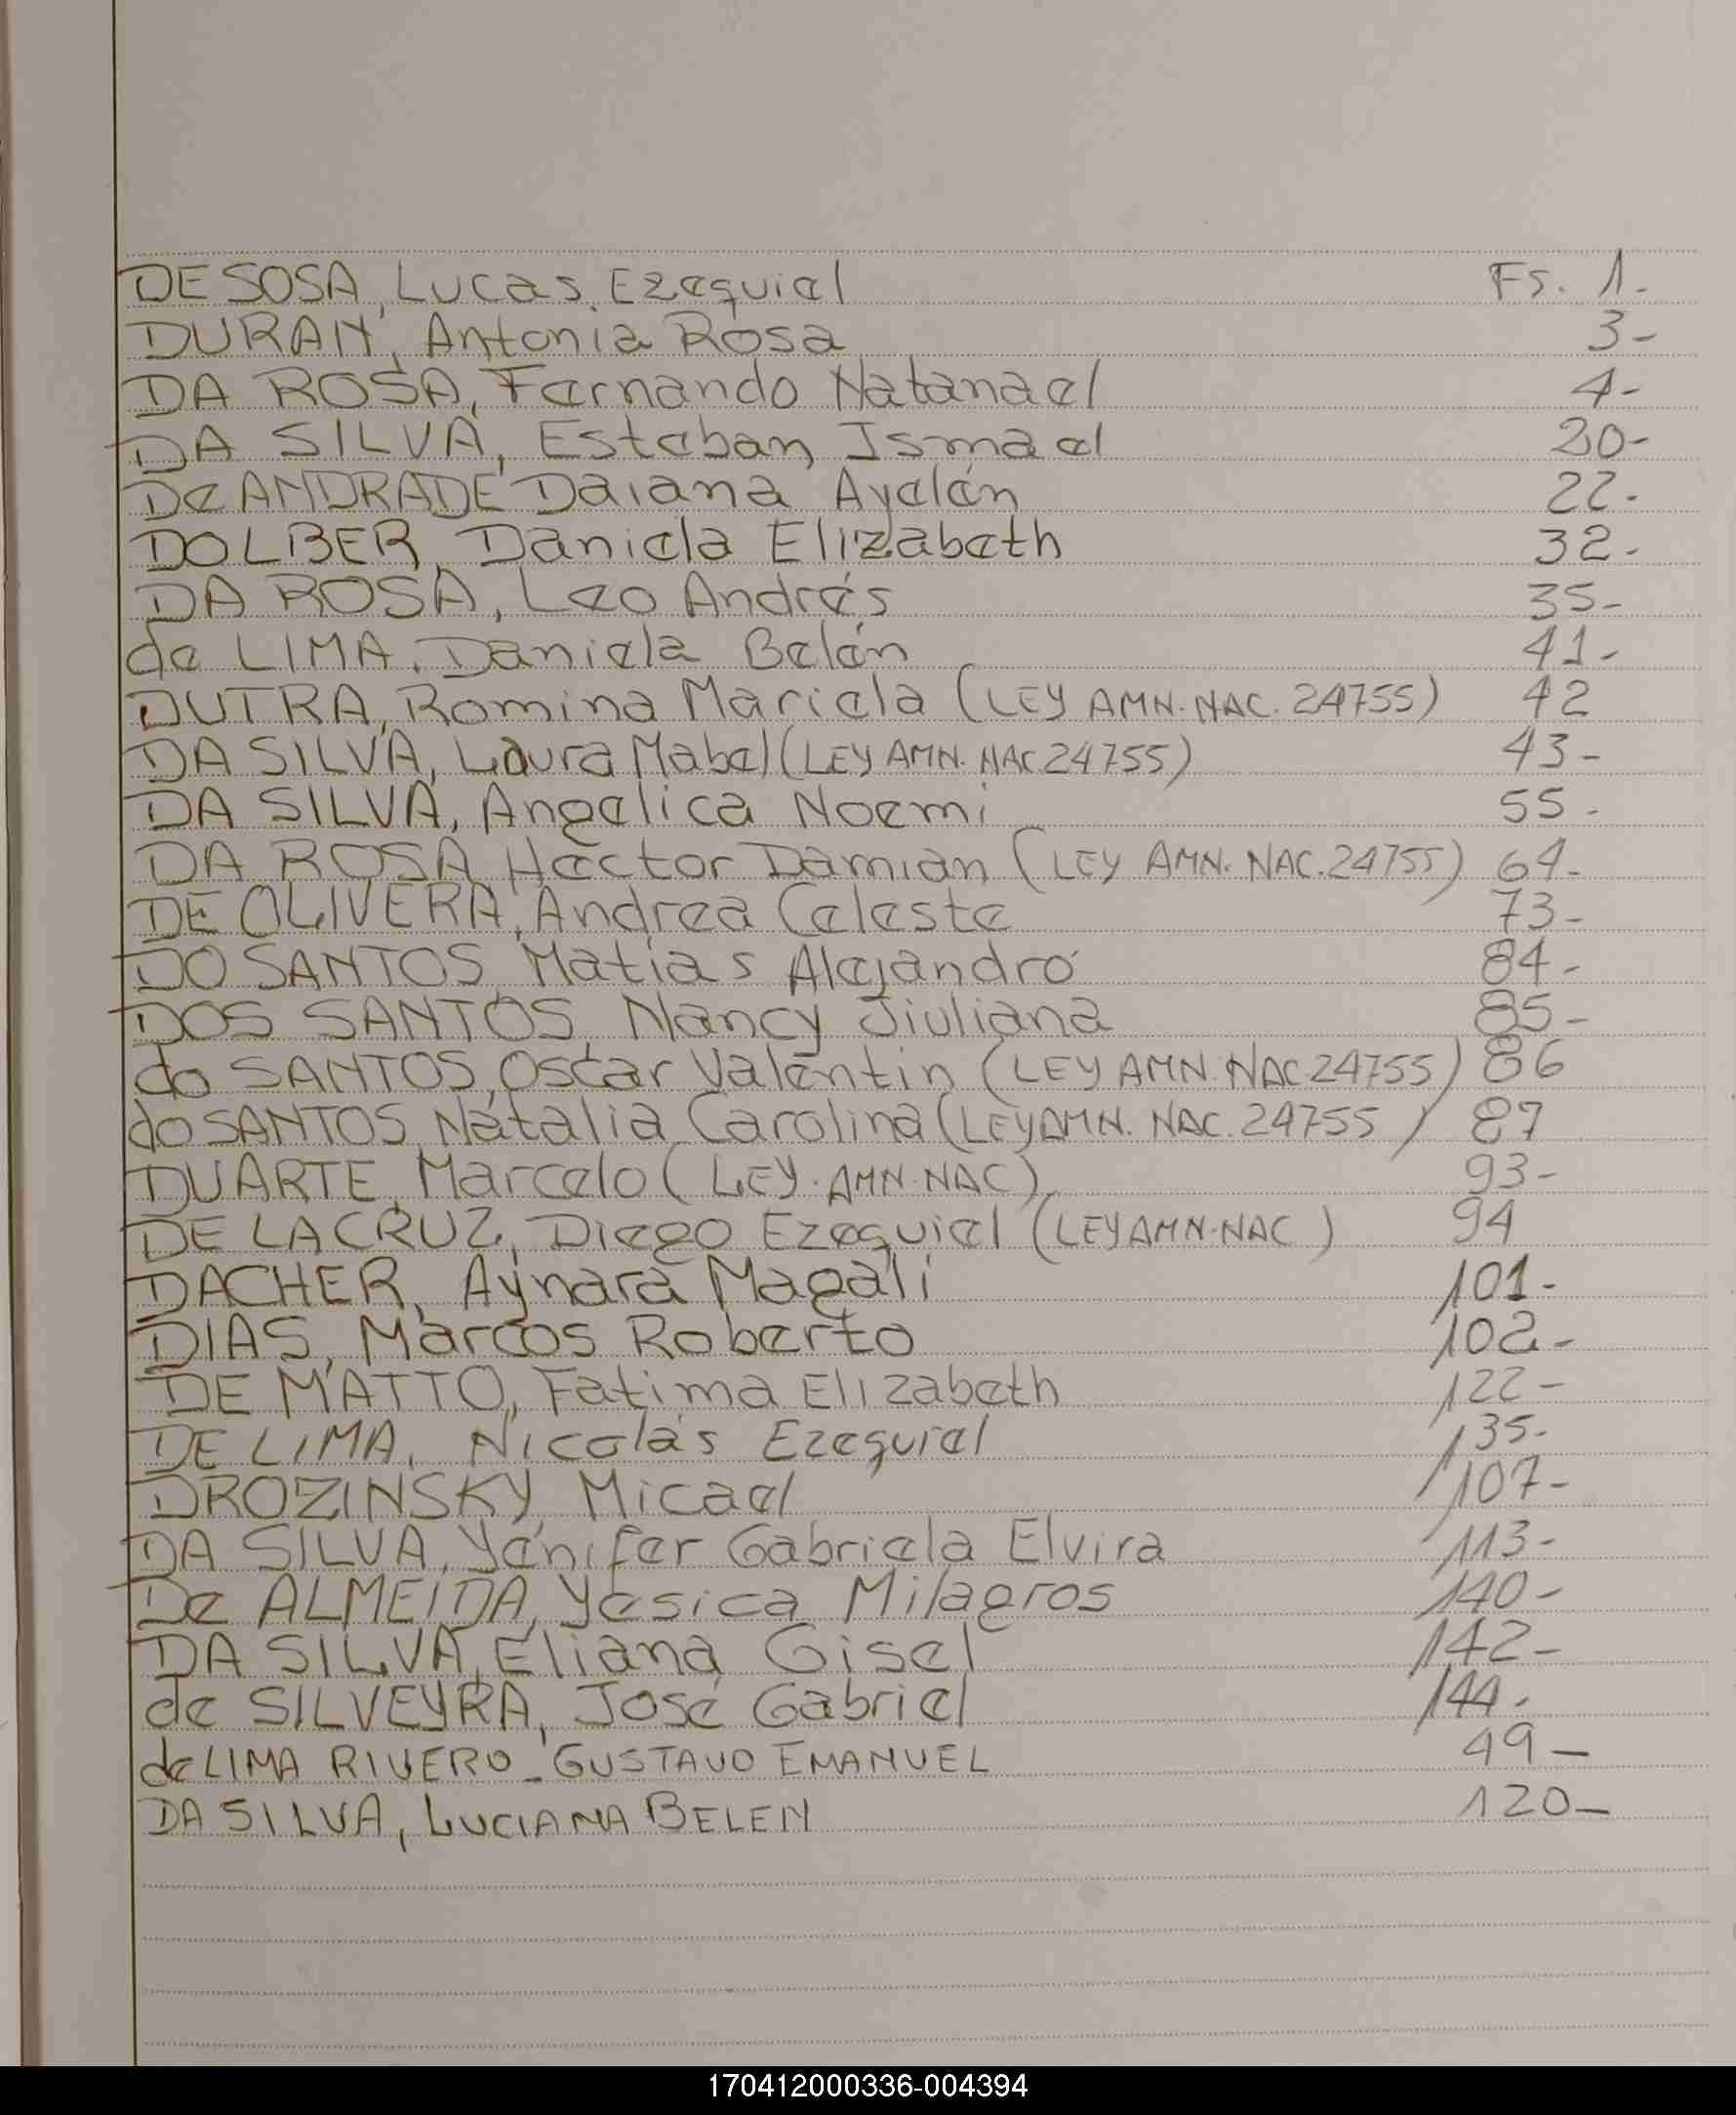 DE SOSA, Lucas Ezequiel Fs. 1.-
DURAN, Antonia Rosa 3-
DA ROSA, Fernando Natanael 4-
DA SILVA, Esteban Ismael 20-
De ANDRADE Daiana Ayelén 22.
DOLBER, Daniela Elizabeth 32.
DA ROSA, Leo Andrés 35-
de LIMA, Daniela Belén 41-
DUTRA, Romina Mariela (LEY AMN. NAC. 24755) 42
DA SILVA, Laura Mabel (LEY AMN. NAC 24755) 43-
DA SILVA, Angelica Noemi 55-
DA ROSA, Hector Damian (LEY AMN. NAC. 24755) 64-
DE OLIVERA, Andrea Celeste 73-
DO SANTOS, Matias Alejandro 84-
DOS SANTOS, Nancy Jiuliana 85-
do SANTOS, Oscar Valentin (LEY AMN. NAC 24755) 86
do SANTOS, Natalia Carolina (LEY AMN. NAC. 24755) 87
DUARTE, Marcelo (LEY. AMN. NAC) 93-
DE LA CRUZ, Diego Ezequiel (LEY AMN. NAC) 94
DACHER, Aynara Magali 101-
DIAS, Marcos Roberto 102-
DE MATTO, Fatima Elizabeth 122-
DE LIMA, Nicolás Ezequiel 135-
DROZINSKY, Micael 107-
DA SILVA, Yenifer Gabriela Elvira 113-
De ALMEIDA, Yesica Milagros 140-
DA SILVA, Eliana Gisel 142-
de SILVEYRA, José Gabriel 144-
de LIMA RIVERO - GUSTAVO EMANUEL 49-
DA SILVA, LUCIANA BELEN 120-
170412000336-004394